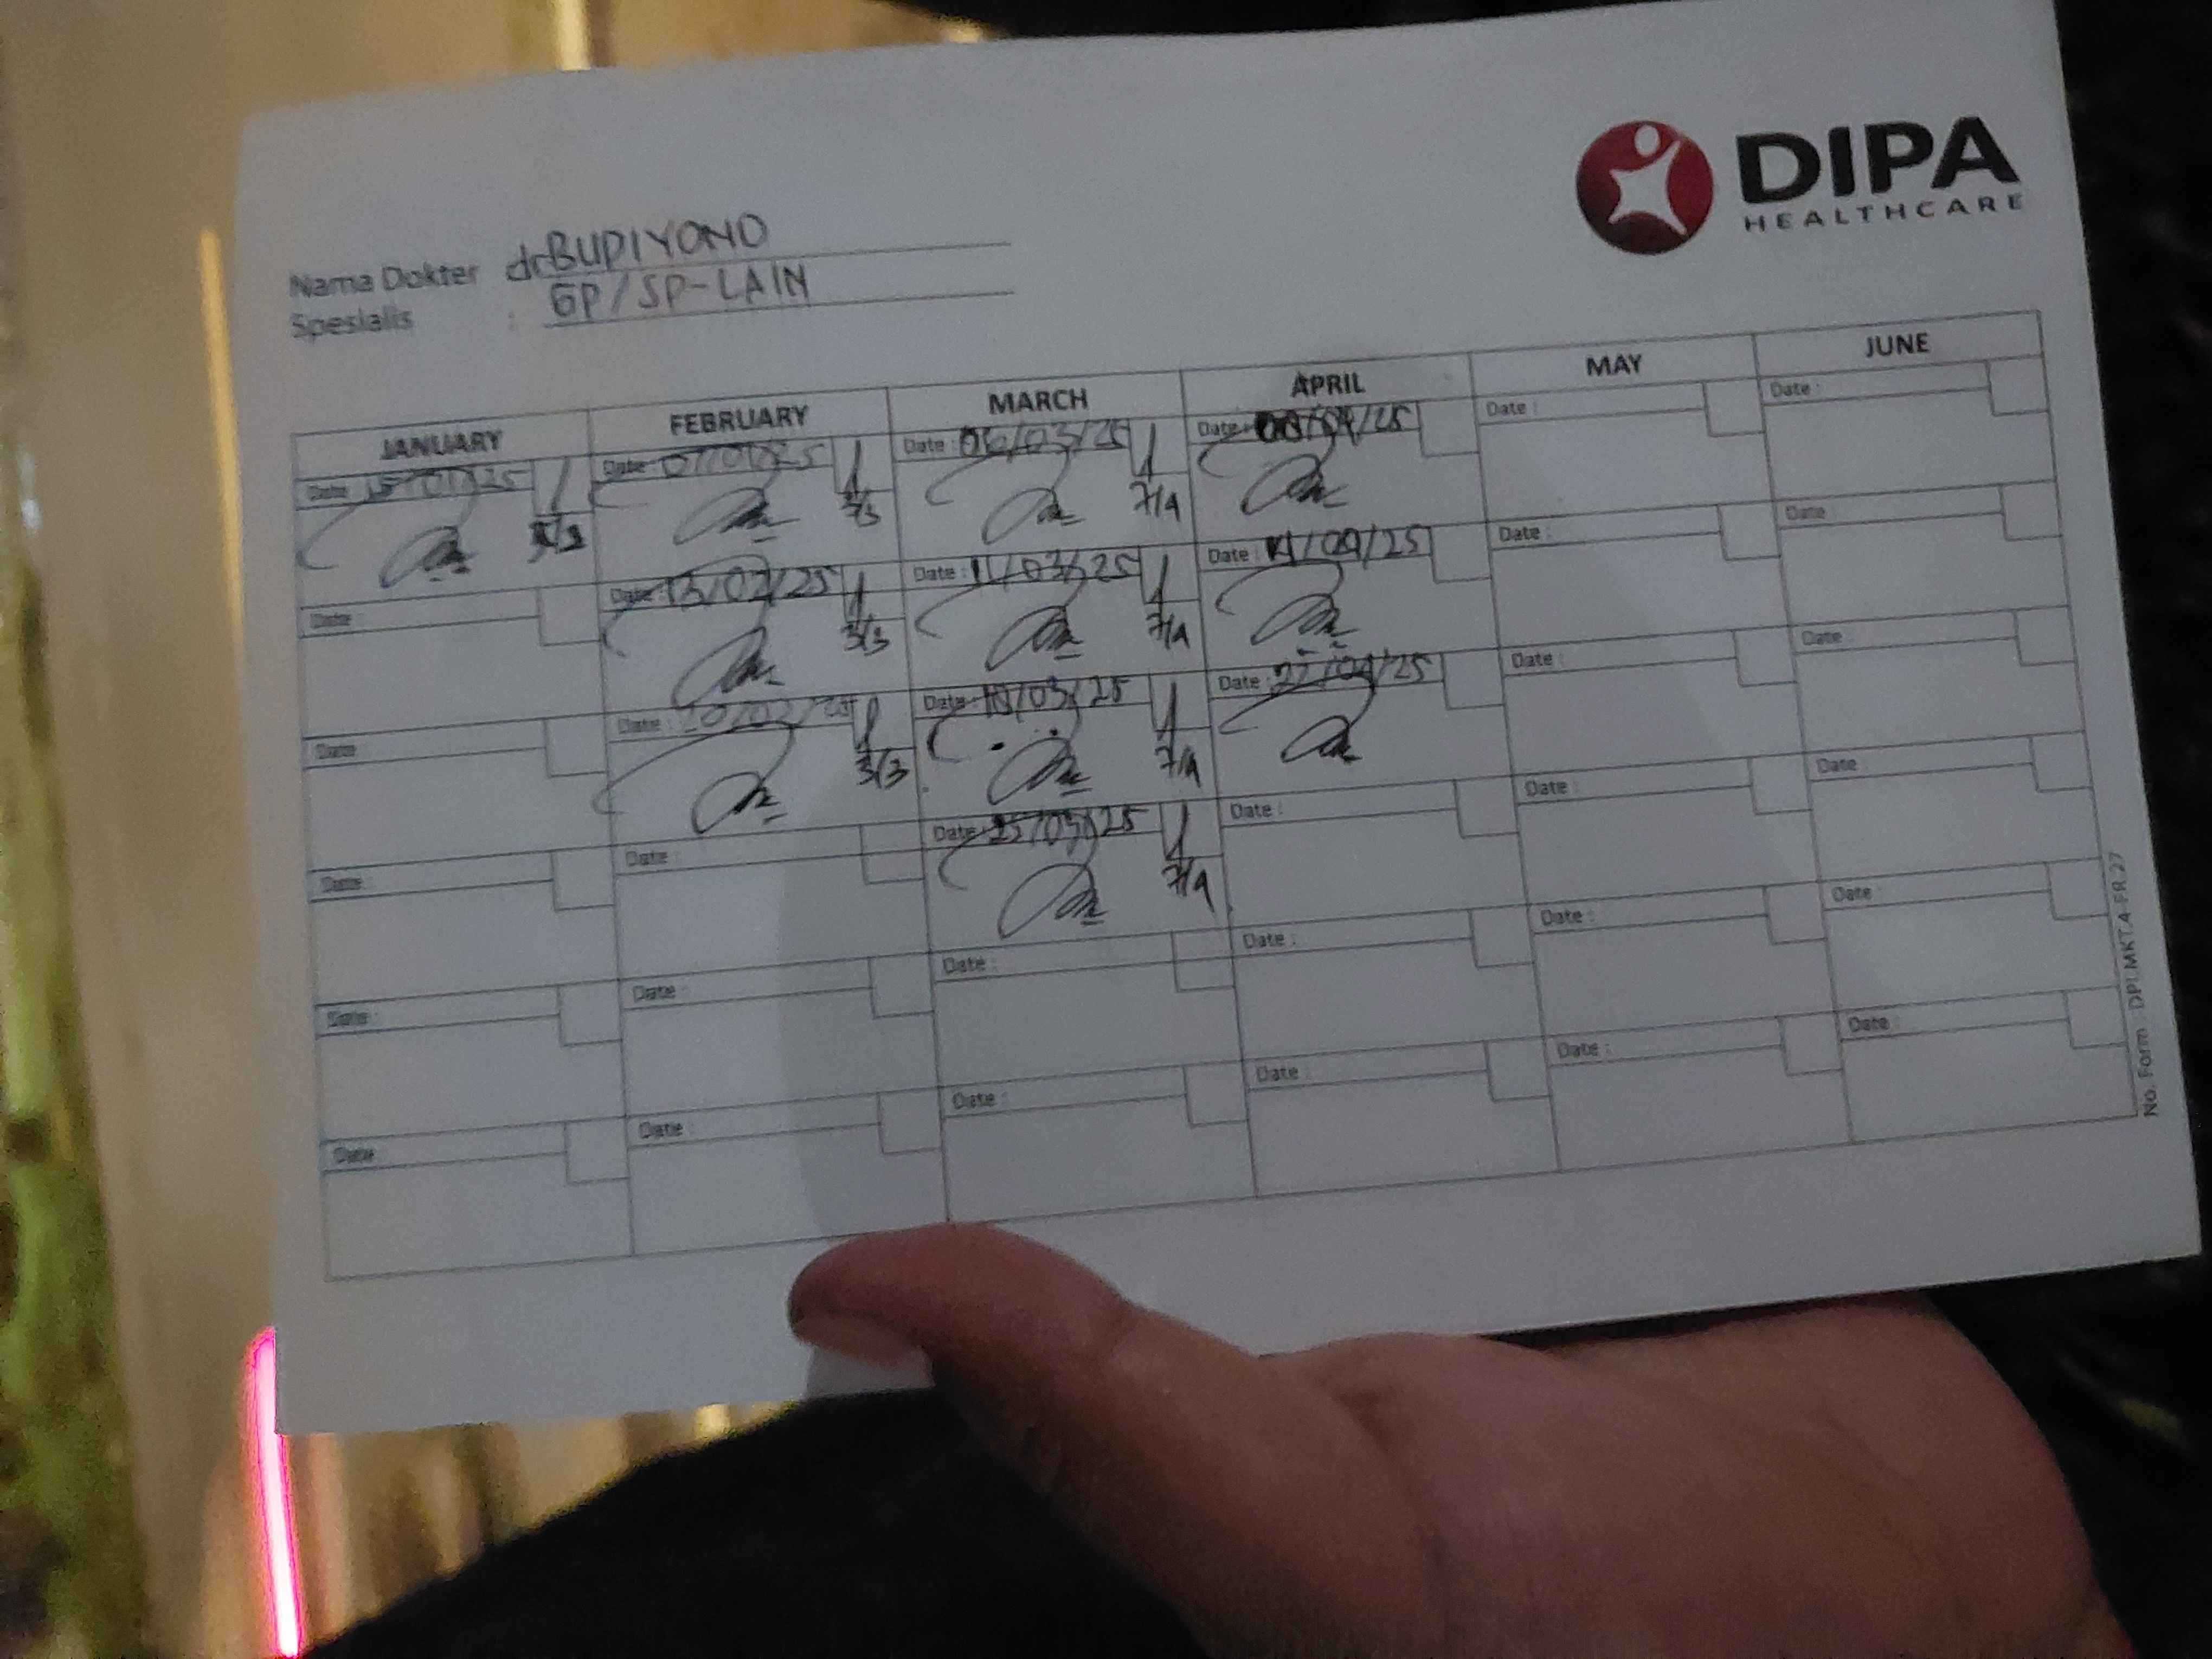 DIPA
HEALTHCARE
Nama Dokter drBUDIYONO
Spesialis : GP/SP-LAIN
JANUARY FEBRUARY MARCH APRIL MAY JUNE
Date 15/01/25 Date : 07/02/25 Date : 06/03/25 Date : /04/25 Date : Date :
3/3 7/4
Date Date : 13/02/25 Date : 11/03/25 Date : 14/04/25 Date : Date :
3/3 7/4
Date Date : 20/02/25 Date : 18/03/25 Date : 22/04/25 Date : Date :
3/3 7/4
Date Date : Date : 25/03/25 Date : Date : Date :
7/4
Date : Date : Date : Date : Date : Date :
Date Date : Date : Date : Date : Date :
No. Form : DPI.MKT.4-FR.27